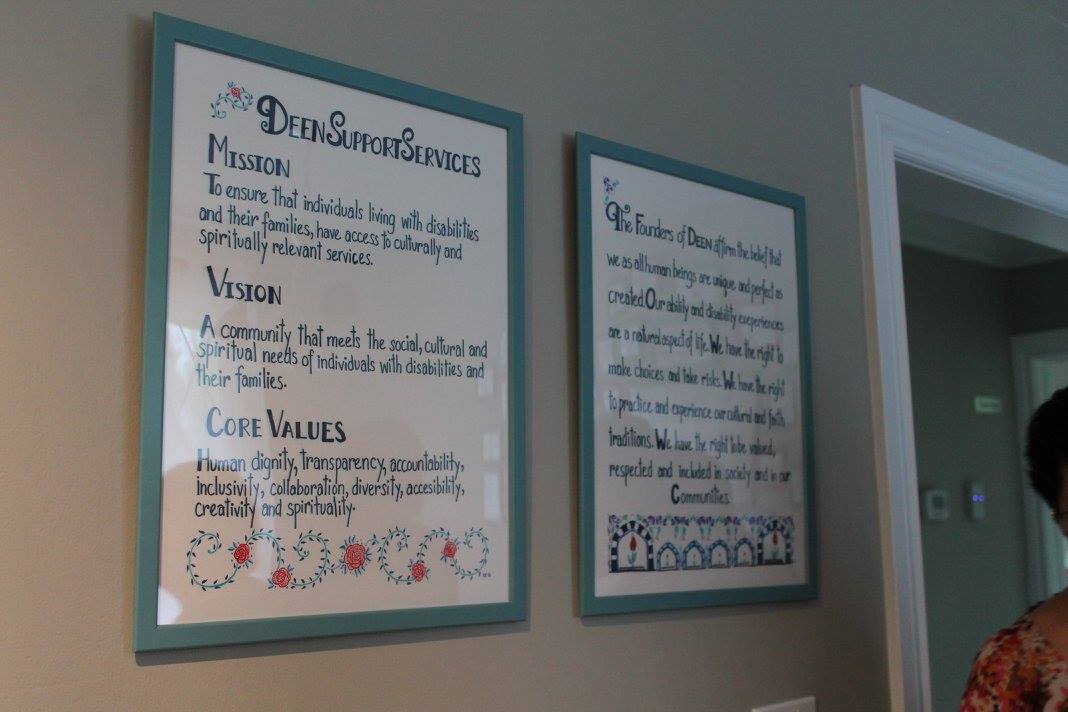 DEENSUPPORTSERVICES
MISSION
To ensure that individuals living with disabilities
and their families, have access to culturally and
spiritually relevant services.
VISION
A community that meets the social, cultural and
spiritual needs of individuals with disabilities and
their families.
CORE VALUES
Human dignity, transparency, accountability,
inclusivity, collaboration, diversity, accesibility,
creativity and spirituality.
The Founders of DEEN affirm the belief that
we as all human beings are unique and perfect as
created. Our ability and disability exeperiences
are a natural aspect of life. We have the right to
make choices and take risks. We have the right
to practice and experience our cultural and faith
traditions. We have the right to be valued,
respected and included in society and in our
Communities.